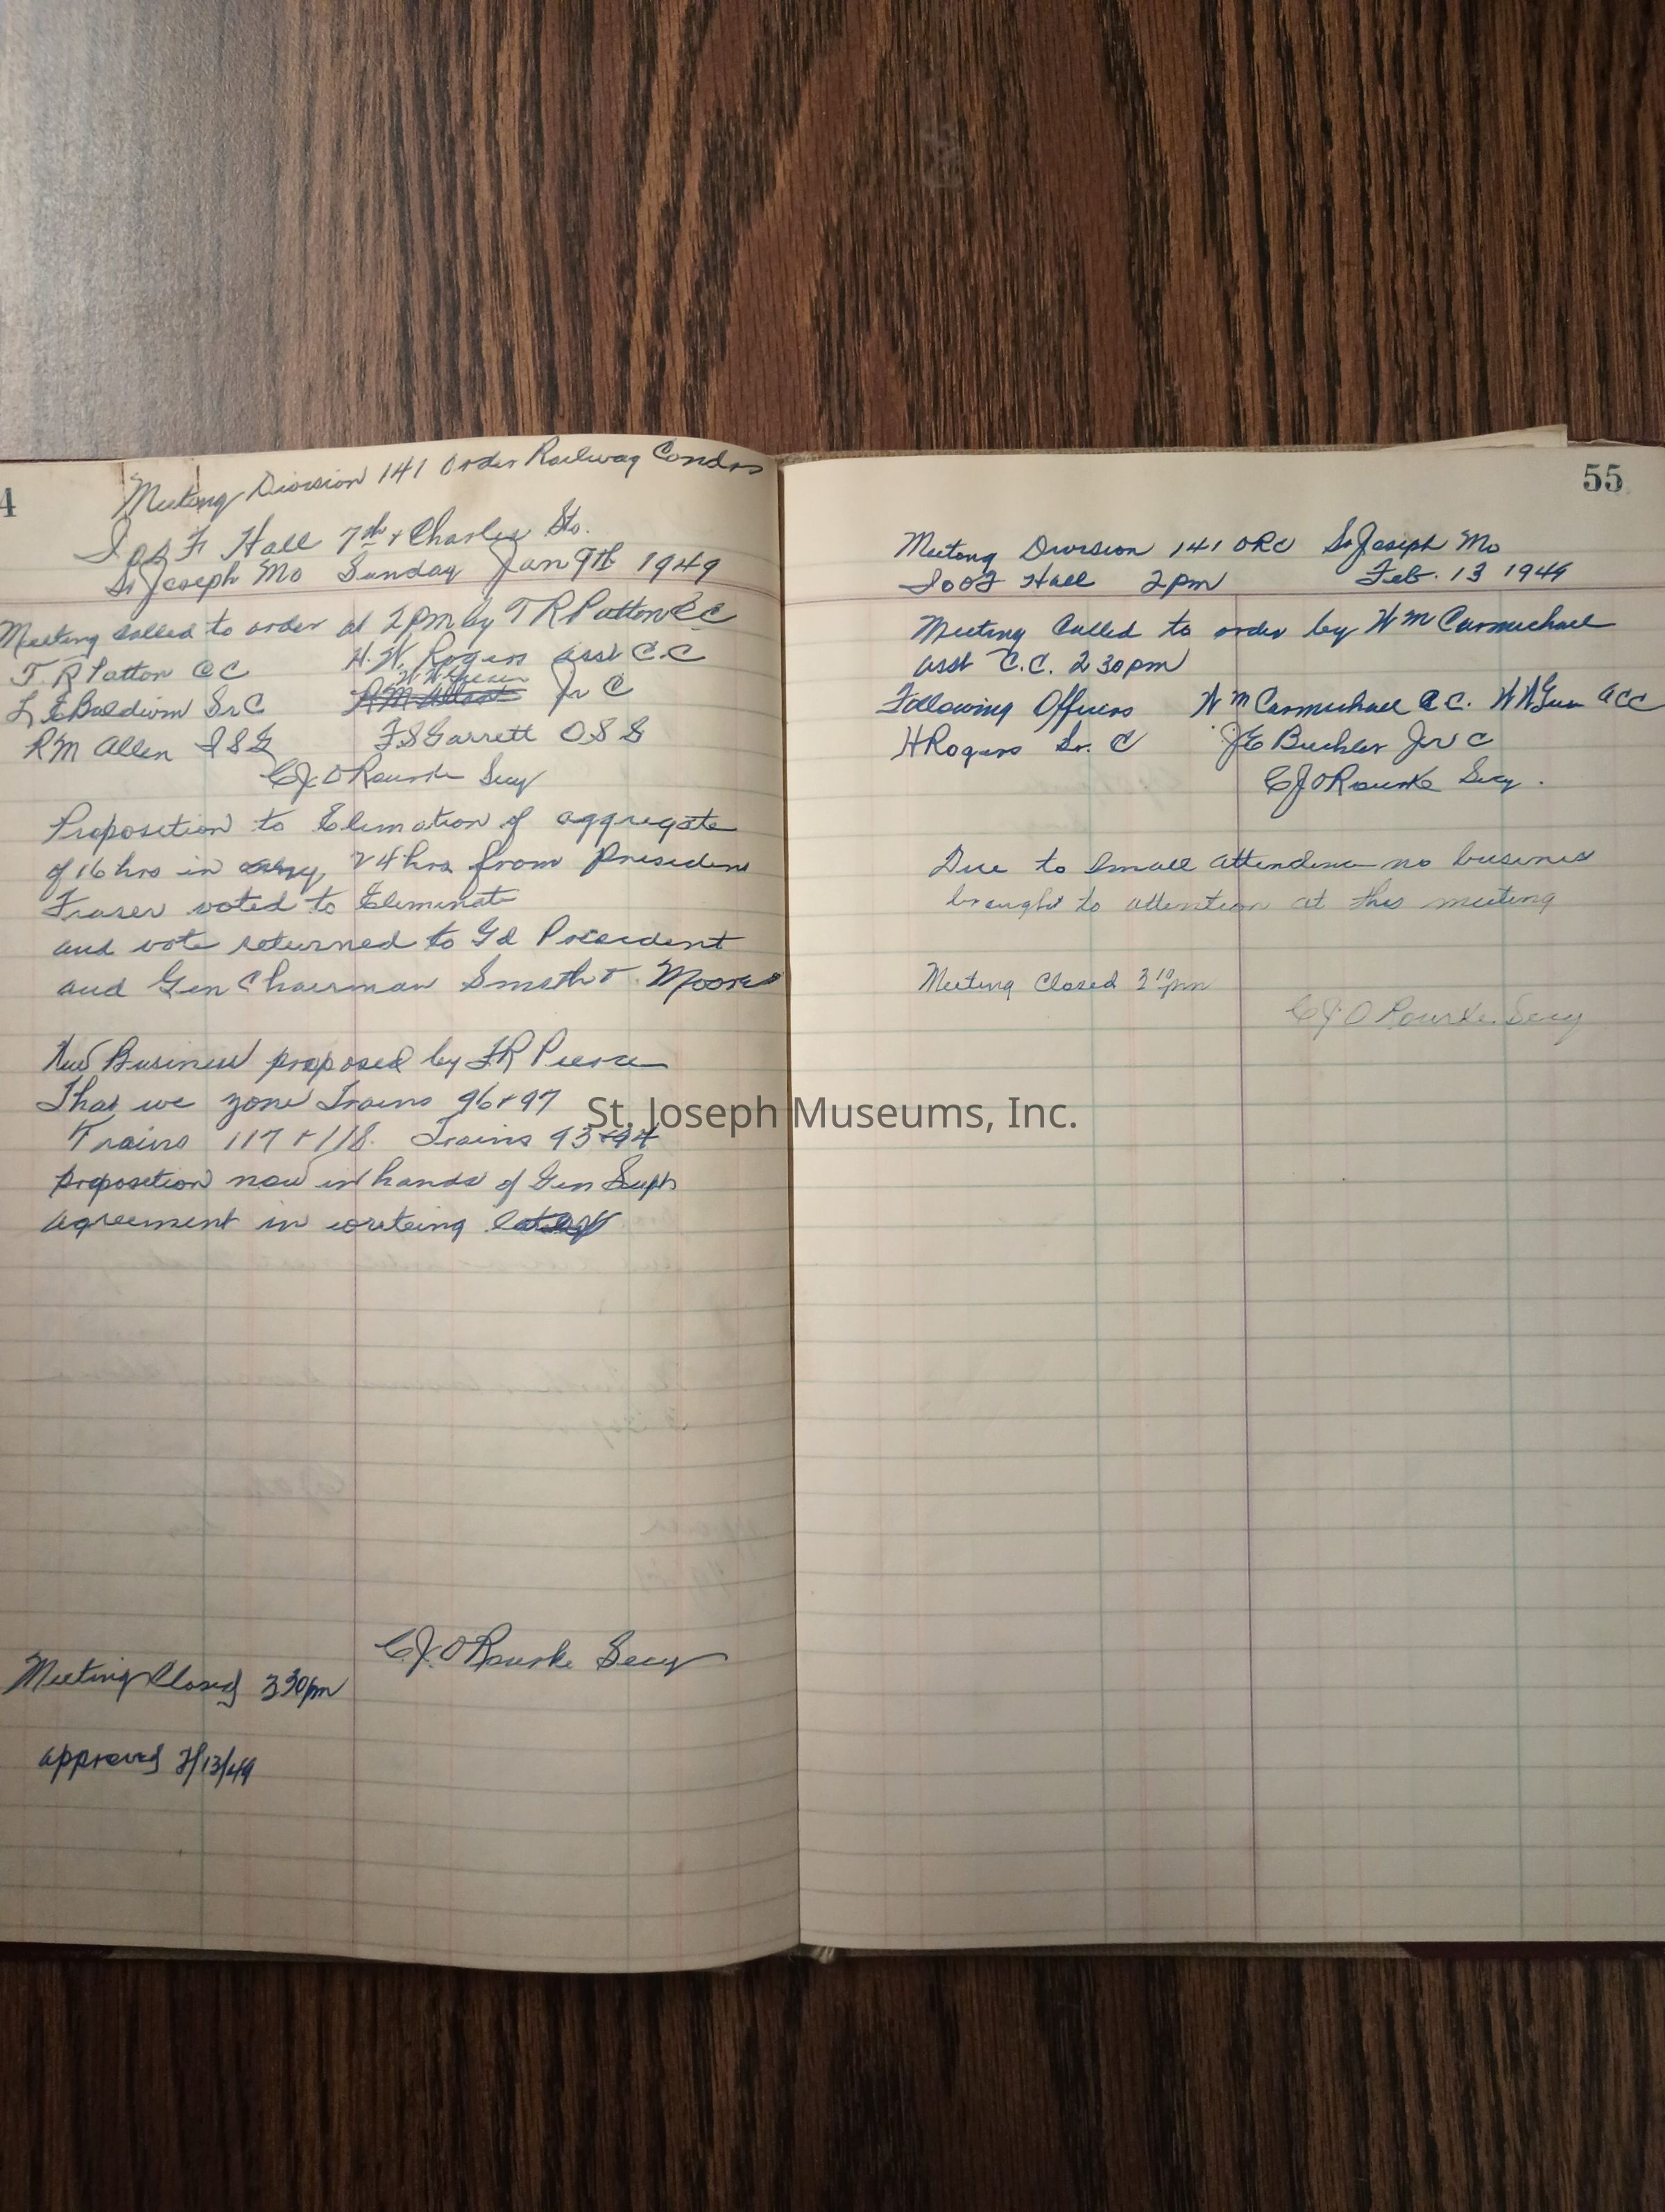 4
Meeting Division 141 Order Railway Condrs
I O O F Hall 7th & Charles Sts.
St Joseph Mo Sunday Jan 9th 1949
Meeting called to order at 2 pm by T R Patton C C
T. R Patton C C H. W. Rogers asst C. C
L E Baldwin Sr C Jr C
R M Allen I S G F S Garrett O S G
C J. O Rourke Secy
Proposition to Elimation of aggregate
of 16 hrs in any 24 hrs from President
Fraser voted to Eliminate
and vote returned to Gd President
and Gen Chairman Smith & Moore
New Business proposed by F R Pierce
That we zone Trains 96 & 97
Trains 117 & 118. Trains 93 & 94
proposition now in hands of Gen Supt
agreement in writeing
C. J. O Rourke Secy
Meeting Closed 3 30 pm
approved 2/13/49
55
Meeting Division 141 ORC St Joseph Mo
I O O F Hall 2 pm Feb. 13 1949
Meeting Called to order by W m Carmichael
asst C. C. 2 30 pm
Following Officers W m Carmichael C C. A C C
H Rogers Sr. C J E Buehler Jr C
C J O Rourke Secy.
Due to Small attendence no business
brought to attention at this meeting
Meeting Closed 3 10 pm
C J. O Rourke Secy
St. Joseph Museums, Inc.